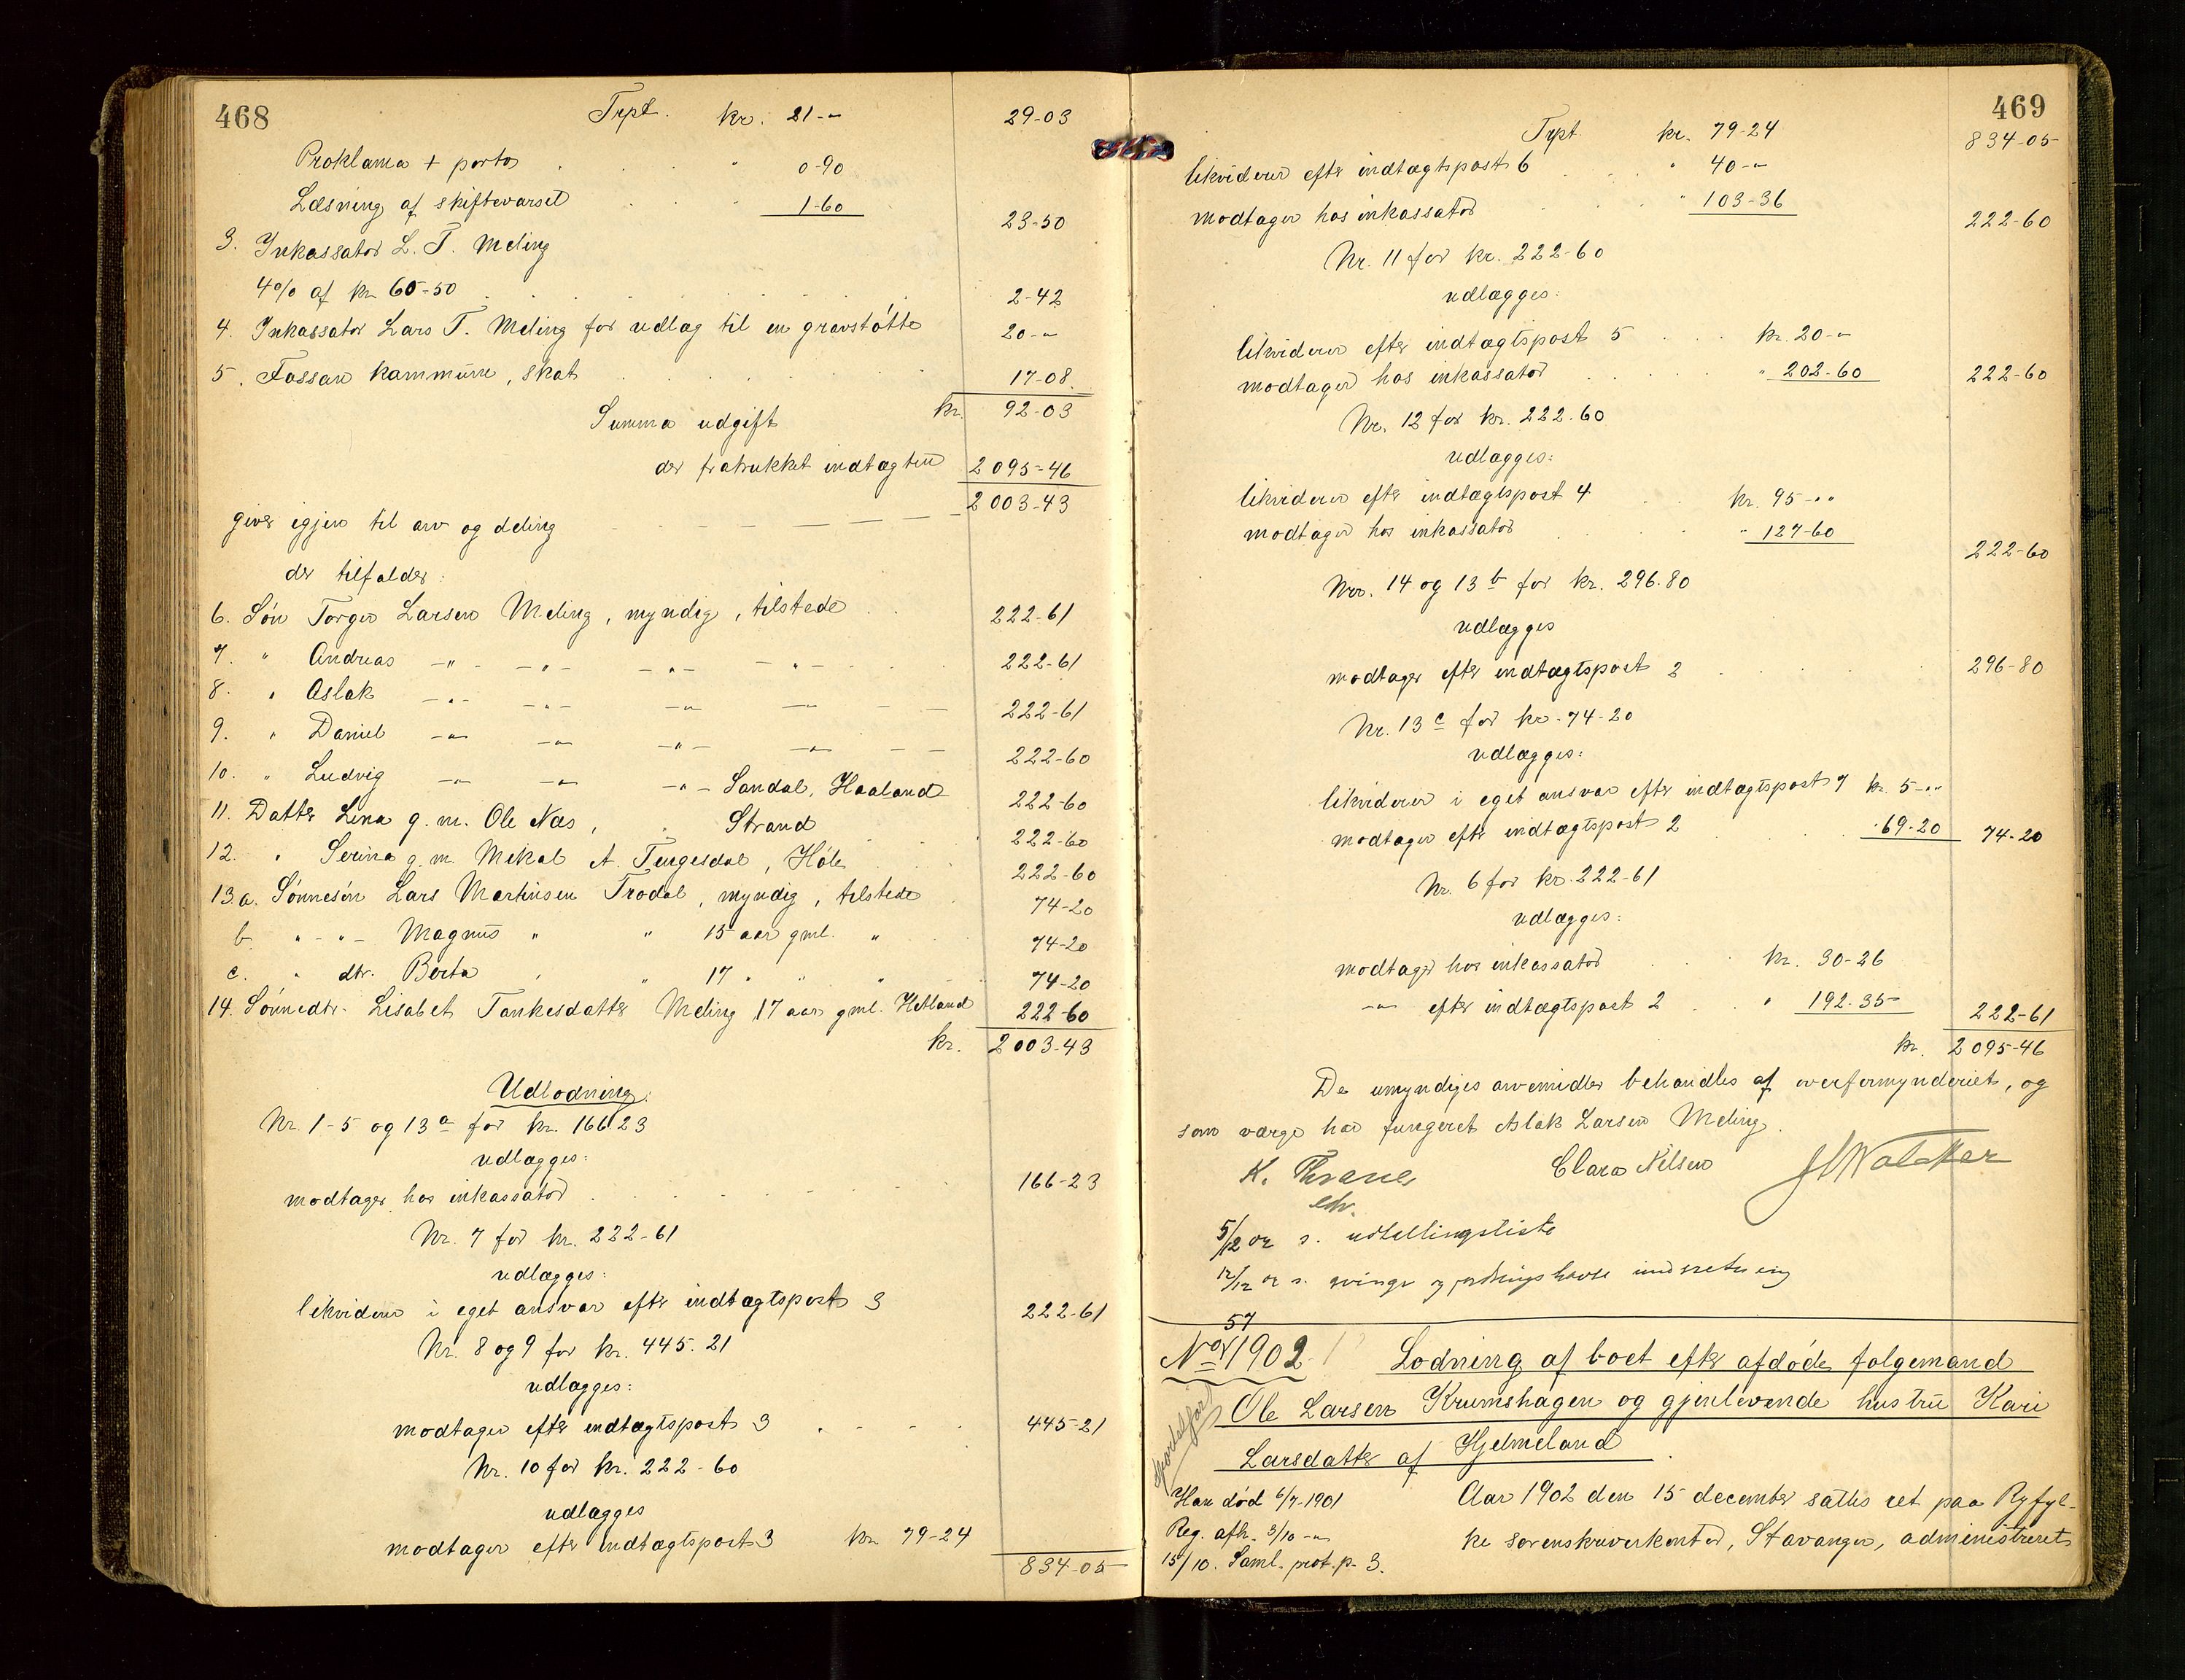 468
Trpt. kr. 21-"
29-03
Proklama + porto " 0-90
Læsning af skiftevarsel " 1-60
23-50
3. Inkassator L. T. Meling
4% af kr. 60-50
2-42
4. Inkassator Lars T. Meling for udlæg til en gravstøtte
20-"
5. Fossan kommune, skat
17-08
Summa udgift kr. 92-03
der fratrukket indtægten 2095-46
giver igjen til arv og deling 2003-43
der tilfalder:
6. Søn Torger Larsen Meling, myndig, tilstede 222-61
7. " Andreas -"- -"- -"- -"- 222-61
8. " Aslak -"- -"- -"- -"- 222-61
9. " Daniel -"- -"- -"- -"- 222-60
10. " Ludvig -"- -"- -"- Sandal, Haaland 222-60
11. Datter Lina g. m. Ole Næs, Strand 222-60
12. " Serina g. m. Mikal A. Tengesdal, Høle 222-60
13.a. Sønnesøn Lars Martinsen Frodal, myndig, tilstede 74-20
b. " - " - Magnus " " 15 aar gml. " 74-20
c. " dtr. Berta " " 17 " " " 74-20
14. Sønnedtr. Lisabet Tankesdatter Meling 17 aar gml. Hetland 222-60
kr. 2003-43
Udlodning:
Nr. 1-5 og 13a for kr. 166.23
udlægges:
modtager hos inkassator 166-23
Nr. 7 for kr. 222-61
udlægges:
likviderer i eget ansvar efter indtægtspost 3 222-61
Nr. 8 og 9 for kr. 445.21
udlægges:
modtager efter indtægtspost 3 445-21
Nr. 10 for kr. 222-60
udlægges
modtager efter indtægtspost 3 kr. 79-24
834-05
469
Trpt kr. 79-24
834-05
likviderer efter indtægtspost 6 " 40-"
modtager hos inkassator " 103-36
222-60
Nr. 11 for kr. 222-60
udlægges:
likviderer efter indtægtspost 5 kr. 20-"
modtager hos inkassator " 202-60
222-60
Nr. 12 for kr. 222.60
udlægges:
likviderer efter indtægtspost 4 kr. 95-"
modtager hos inkassator " 127-60
222-60
Nro. 14 og 13b for kr. 296.80
udlægges
modtager efter indtægtspost 2 296-80
Nr. 13c for kr. 74-20
udlægges:
likviderer i eget ansvar efter indtægtspost 7 kr. 5-"
modtager efter indtægtspost 2 " 69-20 74-20
Nr. 6 for kr. 222-61
udlægges:
modtager hos inkassator kr. 30-26
-"- efter indtægtspost 2 " 192.35
222-61
kr. 2095-46
De umyndiges arvemidler behandles af overformynderiet, og
som værge har fungeret Aslak Larsen Meling.
K. Thrane
Clara Nilsen
5/12 02 s. udtellingsliste
12/12 02 s.
57
No 1902 Lodning af boet efter afdøde folgemand
Ole Larsen Krumshagen og gjenlevende hustru Kari
Larsdatter af Hjelmeland
Han død 6/7-1901
Reg. afh. 3/10 -"
15/10. Saml. prot. p. 3.
Aar 1902 den 15 december sattes ret paa Ryfyl-
ke sorenskriverkontor, Stavanger, administreret